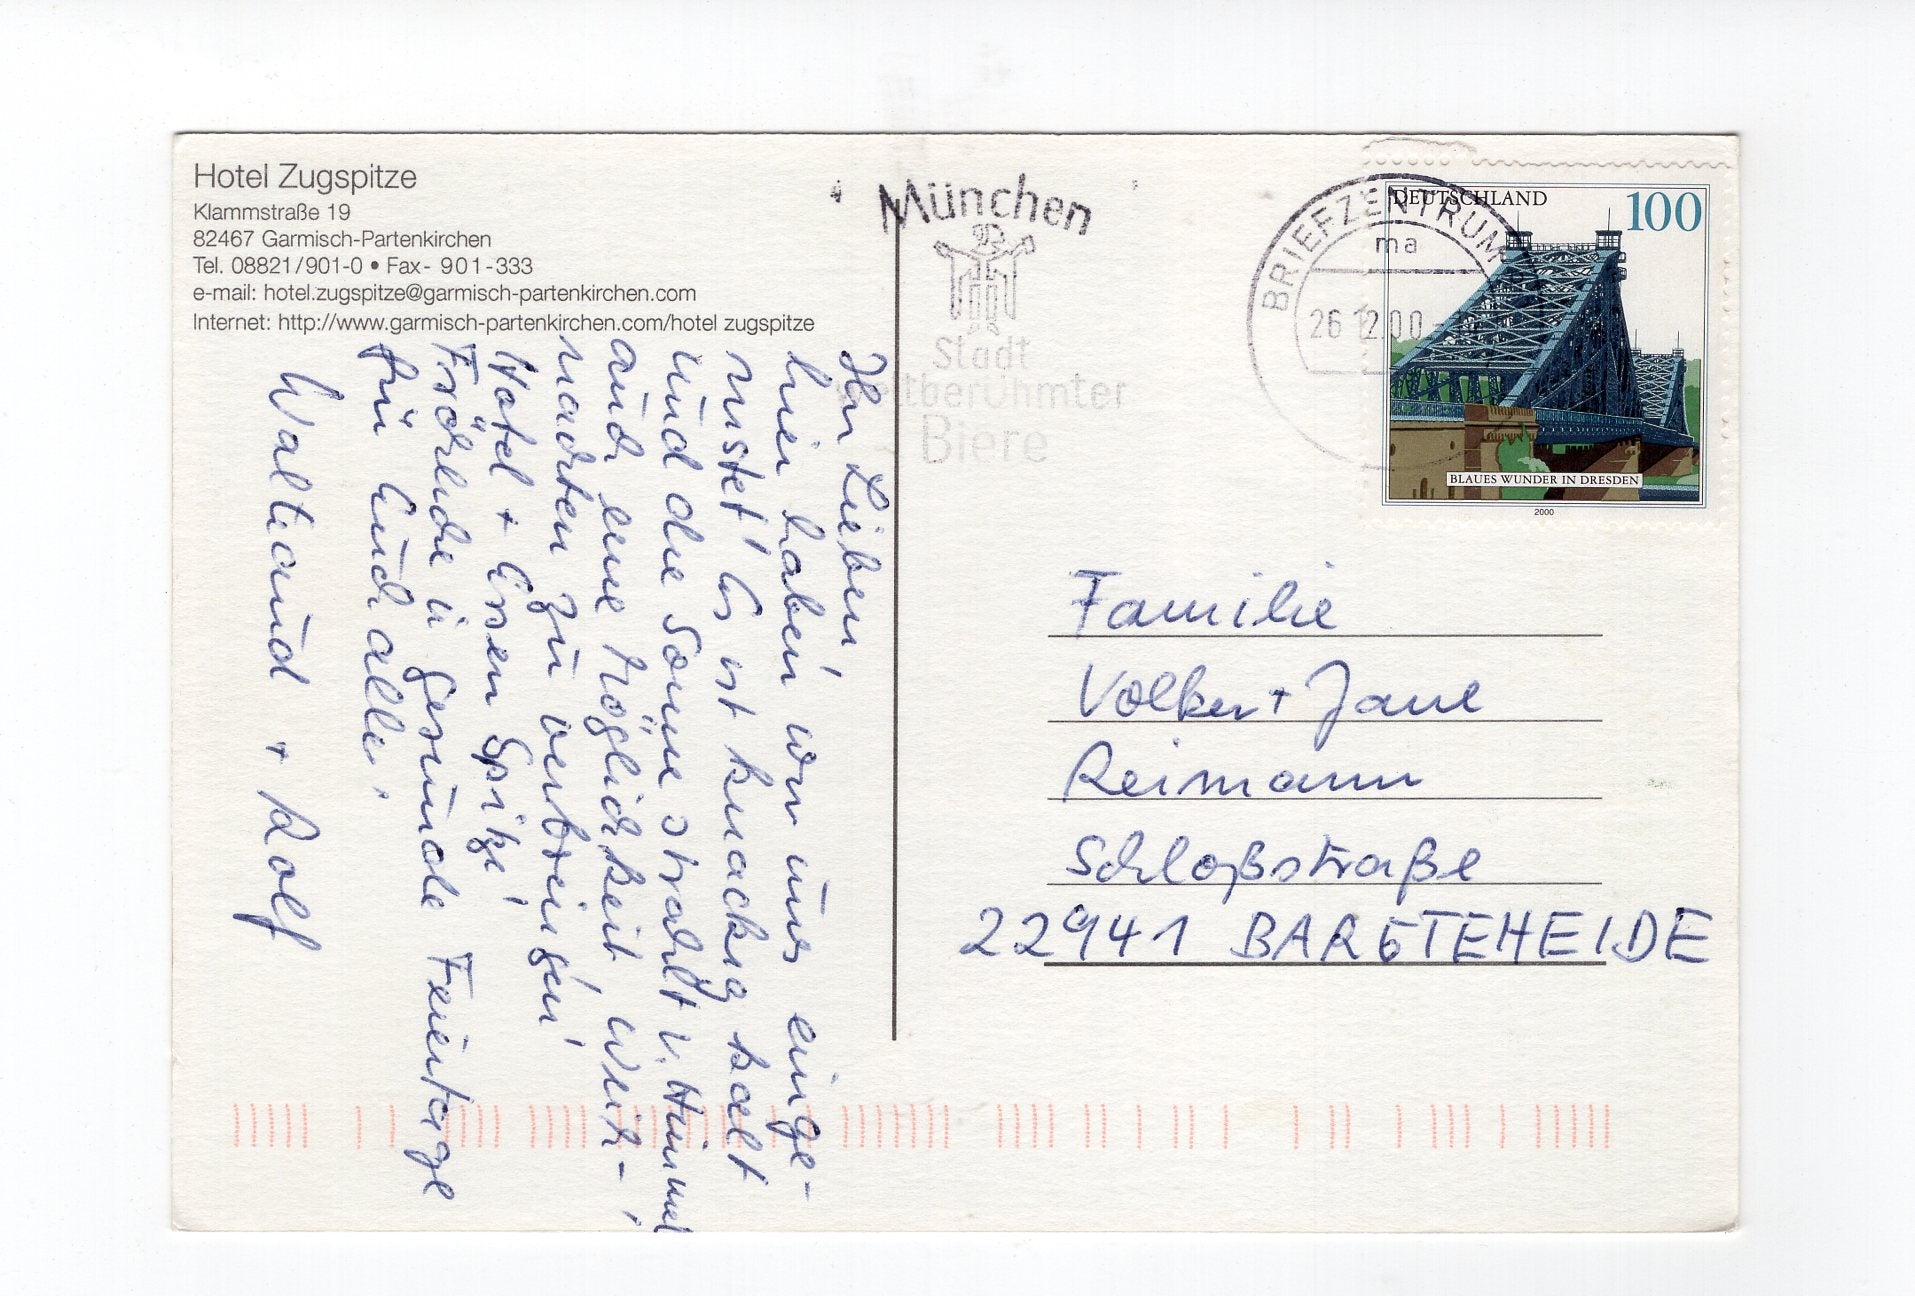 Hotel Zugspitze
Klammstraße 19
82467 Garmisch-Partenkirchen
Tel. 08821/901-0 • Fax- 901-333
e-mail: hotel.zugspitze@garmisch-partenkirchen.com
Internet: http://www.garmisch-partenkirchen.com/hotel zugspitze
Ihr Lieben,
hier haben wir uns einge-
nistet! Es ist knackig kalt
und die Sonne strahlt v. Himmel,
auch eine Möglichkeit, Weih-
nachten zu verbringen!
Hotel + Essen Spitze!
Fröhliche u. gesunde Feiertage
für Euch alle.
Waltraud + Rolf
München
Stadt
weltberühmter
Biere
BRIEFZENTRUM
ma
26.12.00
DEUTSCHLAND
100
BLAUES WUNDER IN DRESDEN
2000
Familie
Volker + Jane
Reimann
Schloßstraße
22941 BARGTEHEIDE